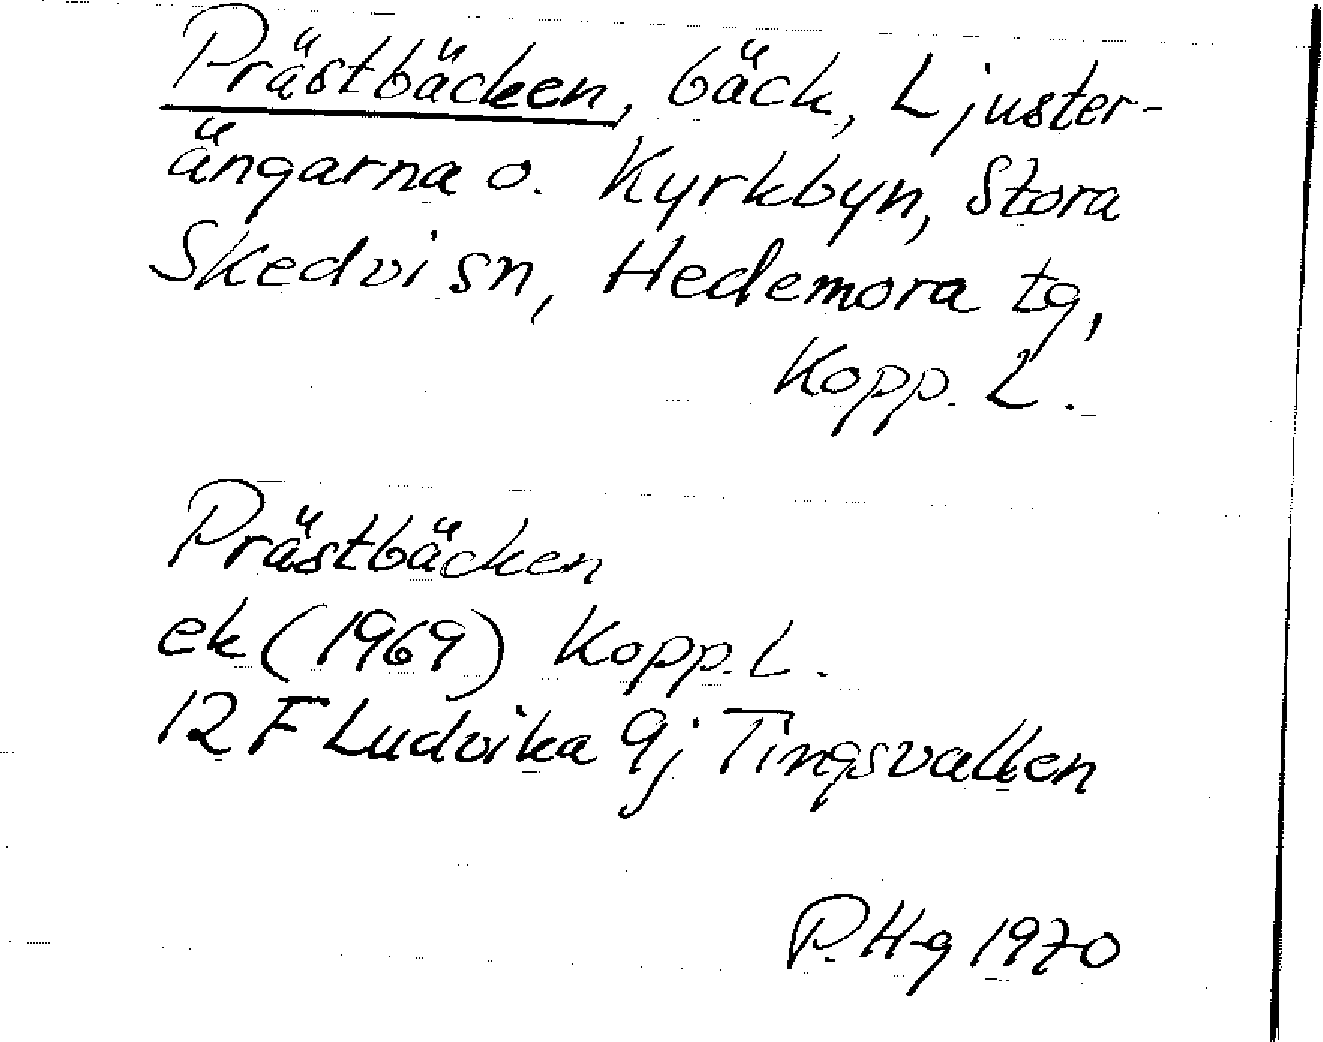 Prästbäcken, bäck, Ljuster-
ängarna o. Kyrkbyn, Stora
Skedvi sn, Hedemora tg,
Kopp. L.
Prästbäcken
ek (1969) Kopp. L.
12 F Ludvika 9j Tingsvallen
P. Hg 1970